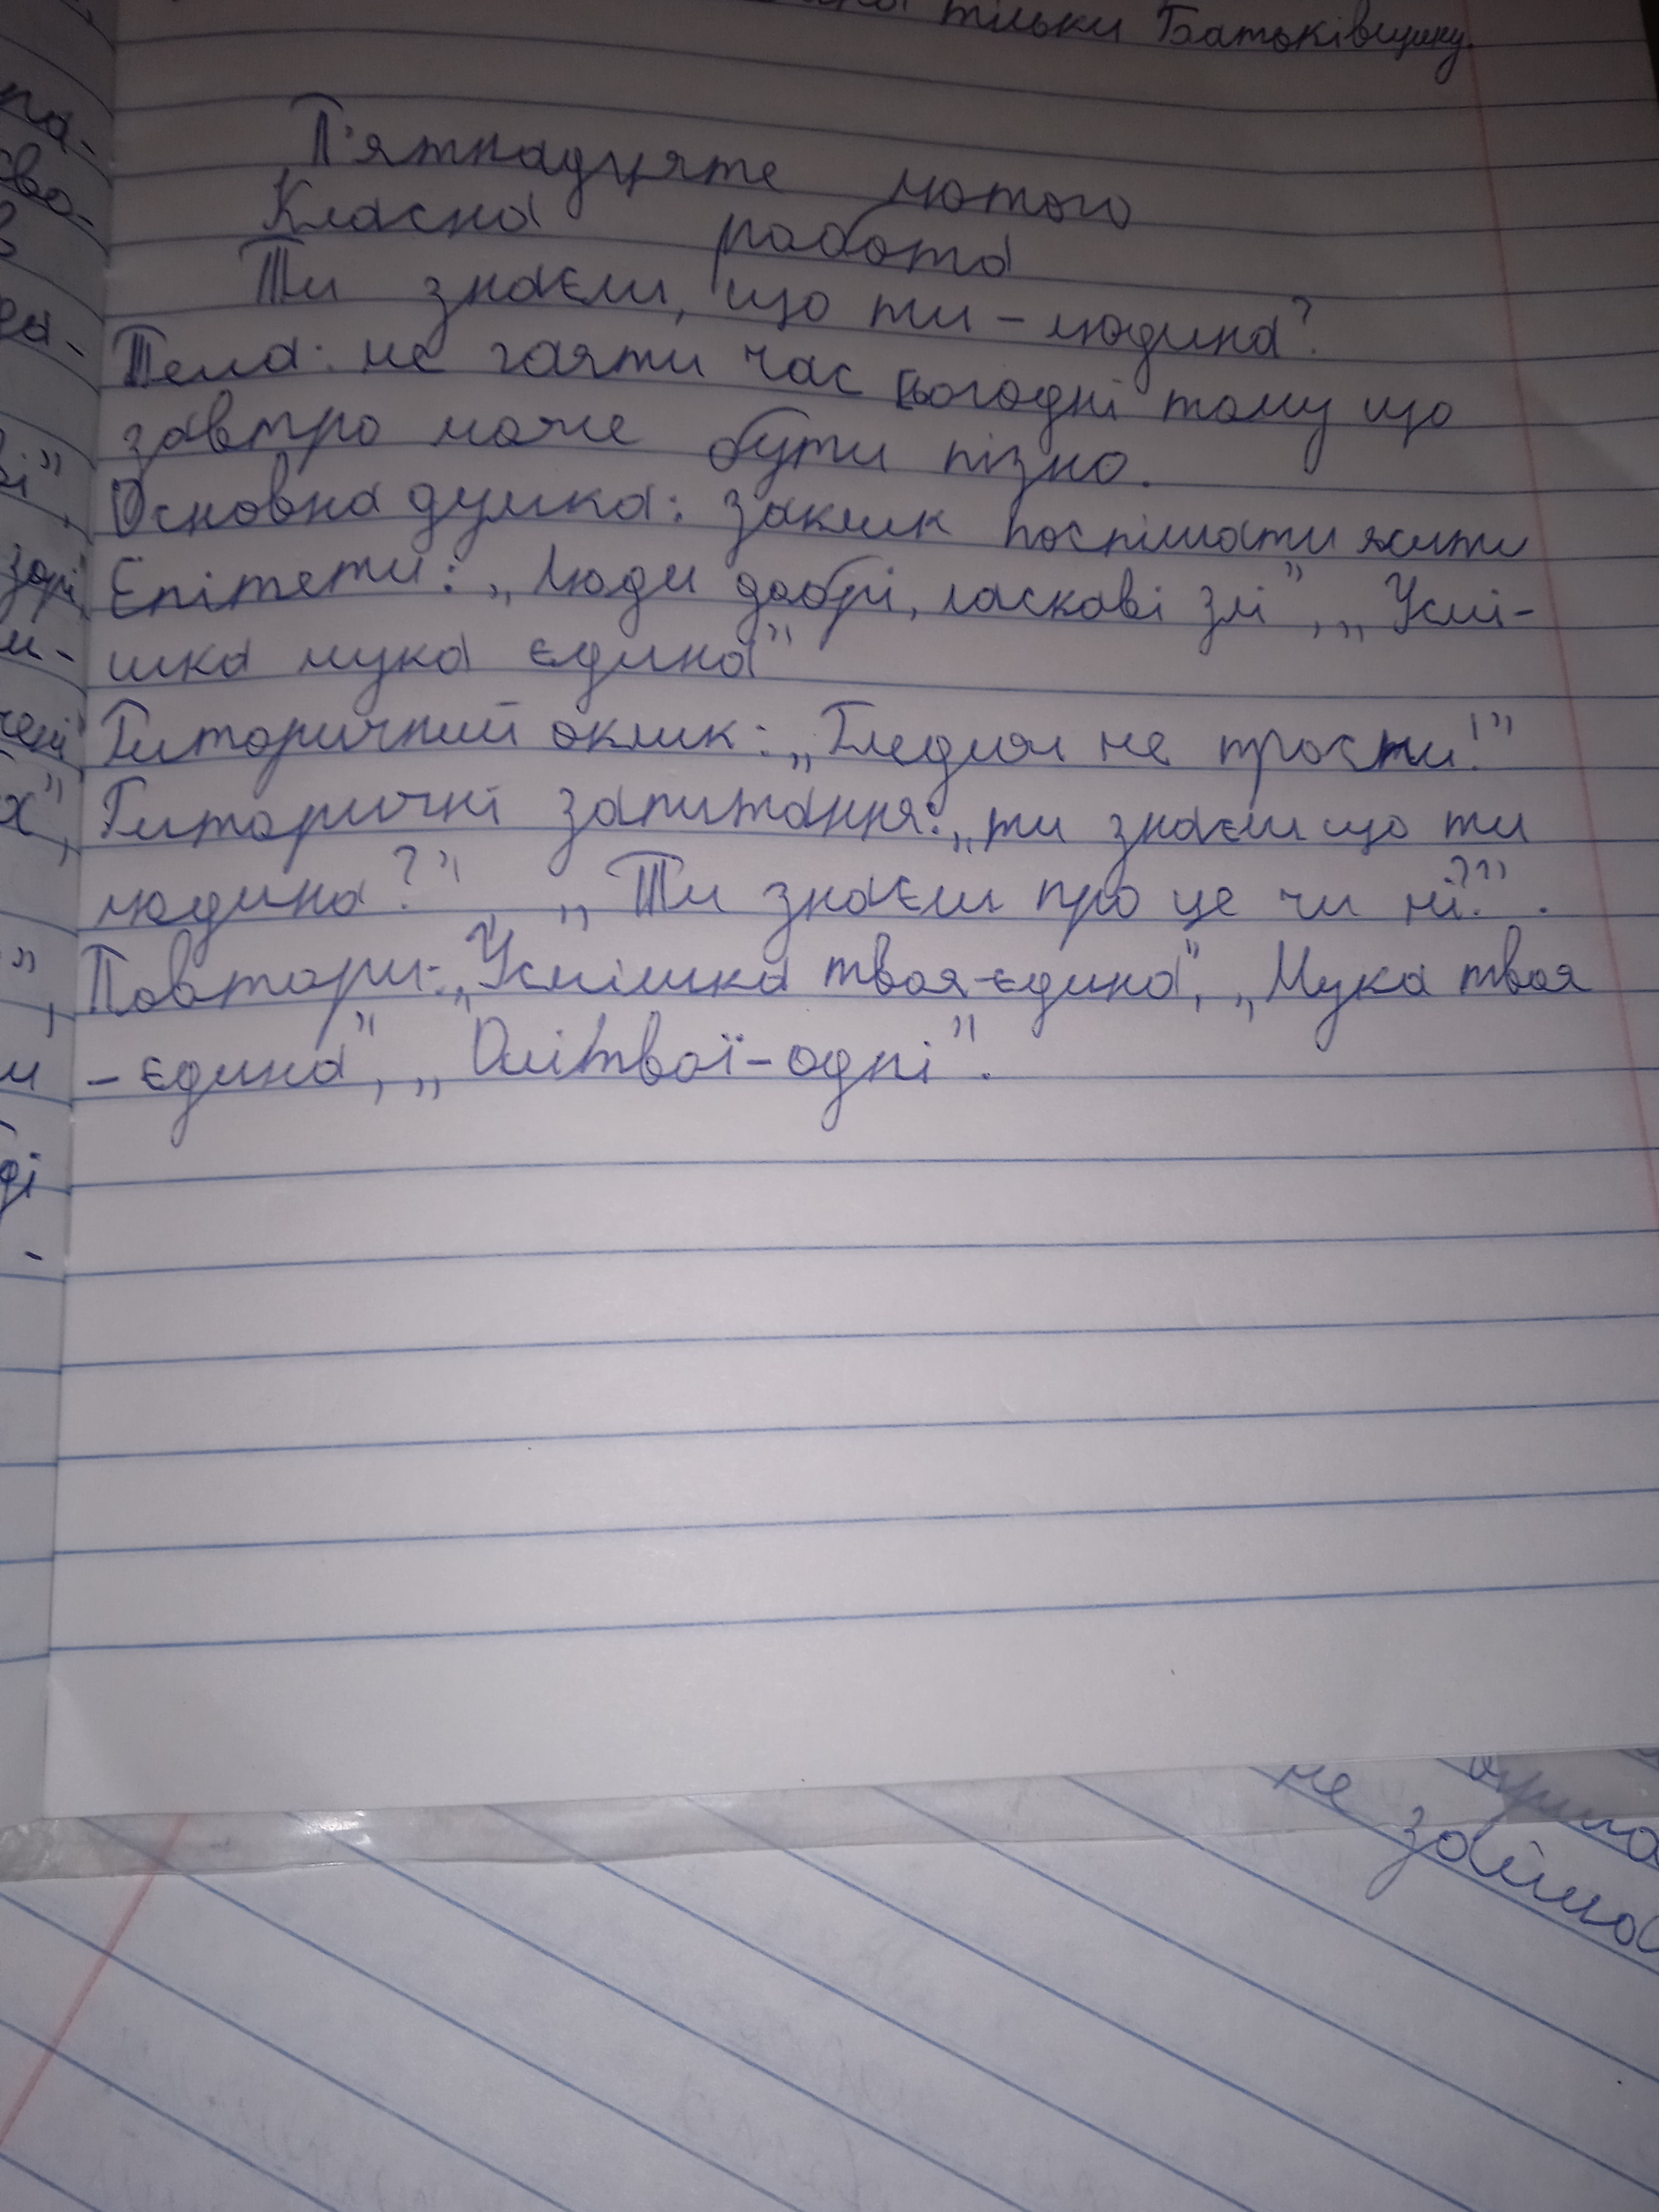 тільки Батьківщину.
П'ятнадцяте лютого
Класна робота
Ти знаєш, що ти – людина?
Тема: не гаяти час сьогодні тому що
завтра може бути пізно.
Основна думка: заклик поспішати жити
Епітети: „Люди добрі, ласкаві злі", „Усмі-
шка мука єдина"
Риторичний оклик: „Гледия не прости!"
Риторичні запитання: „ти знаєш що ти
людина?" „Ти знаєш про це чи ні?".
Повтори: „Усмішка твоя-єдина", „Мука твоя
– єдина", „Очі твої – одні".